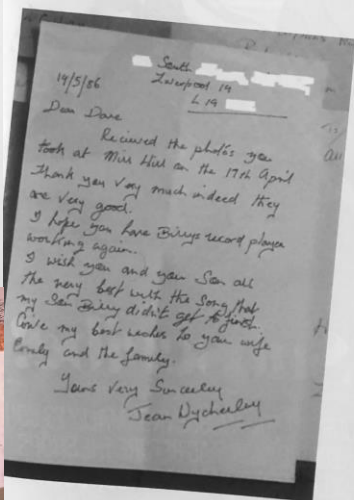 South
19/5/86 Liverpool 19
L19
Dear Dave
Recieved the photos you
took at Mill Hill on the 17th April
Thank you very much indeed they
are very good.
I hope you have Billys record player
working again.
I wish you and your Son all
the very best with the Song that
my Son Billy didn't get to finish.
Give my best wishes to your wife
Emily and the family.
Yours Very Sincerely
Jean Wycherley